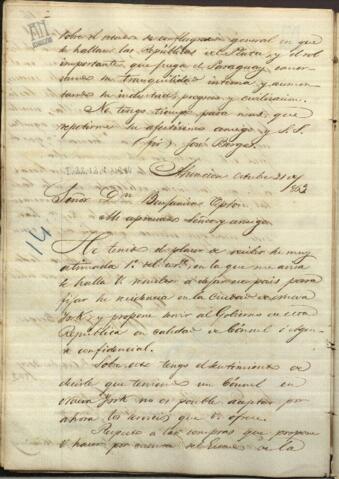 sobre el estado de conflagración general en que
se hallan las Repúblicas del Plata, y el rol
importante que juega el Paraguay, conser-
vando su tranquilidad interna y aumen-
tando su industria, progreso y civilización.
No tengo tiempo para mas, que
repetirme su afectísimo amigo y S. S.
(fir) José Berges
Asuncion Octubre 21 de
1863
Señor Dn Benjamin
Mi apreciado Señor y amigo
14
He tenido el placer de recibir su muy
estimada 1º del cte, en la que me avisa
se halla V. a dejar este país para
fijar su residencia en la Ciudad de Nueva
York, y propone servir al Gobierno de esta
República en calidad de Cónsul o Agen-
te confidencial.
Sobre este tengo el sentimiento de
decirle que teniendo un Cónsul en
Nueva York no es posible aceptar por
ahora los servicios que V. ofrece.
Respecto a las compras que propone
V. hacer por cuenta del de la